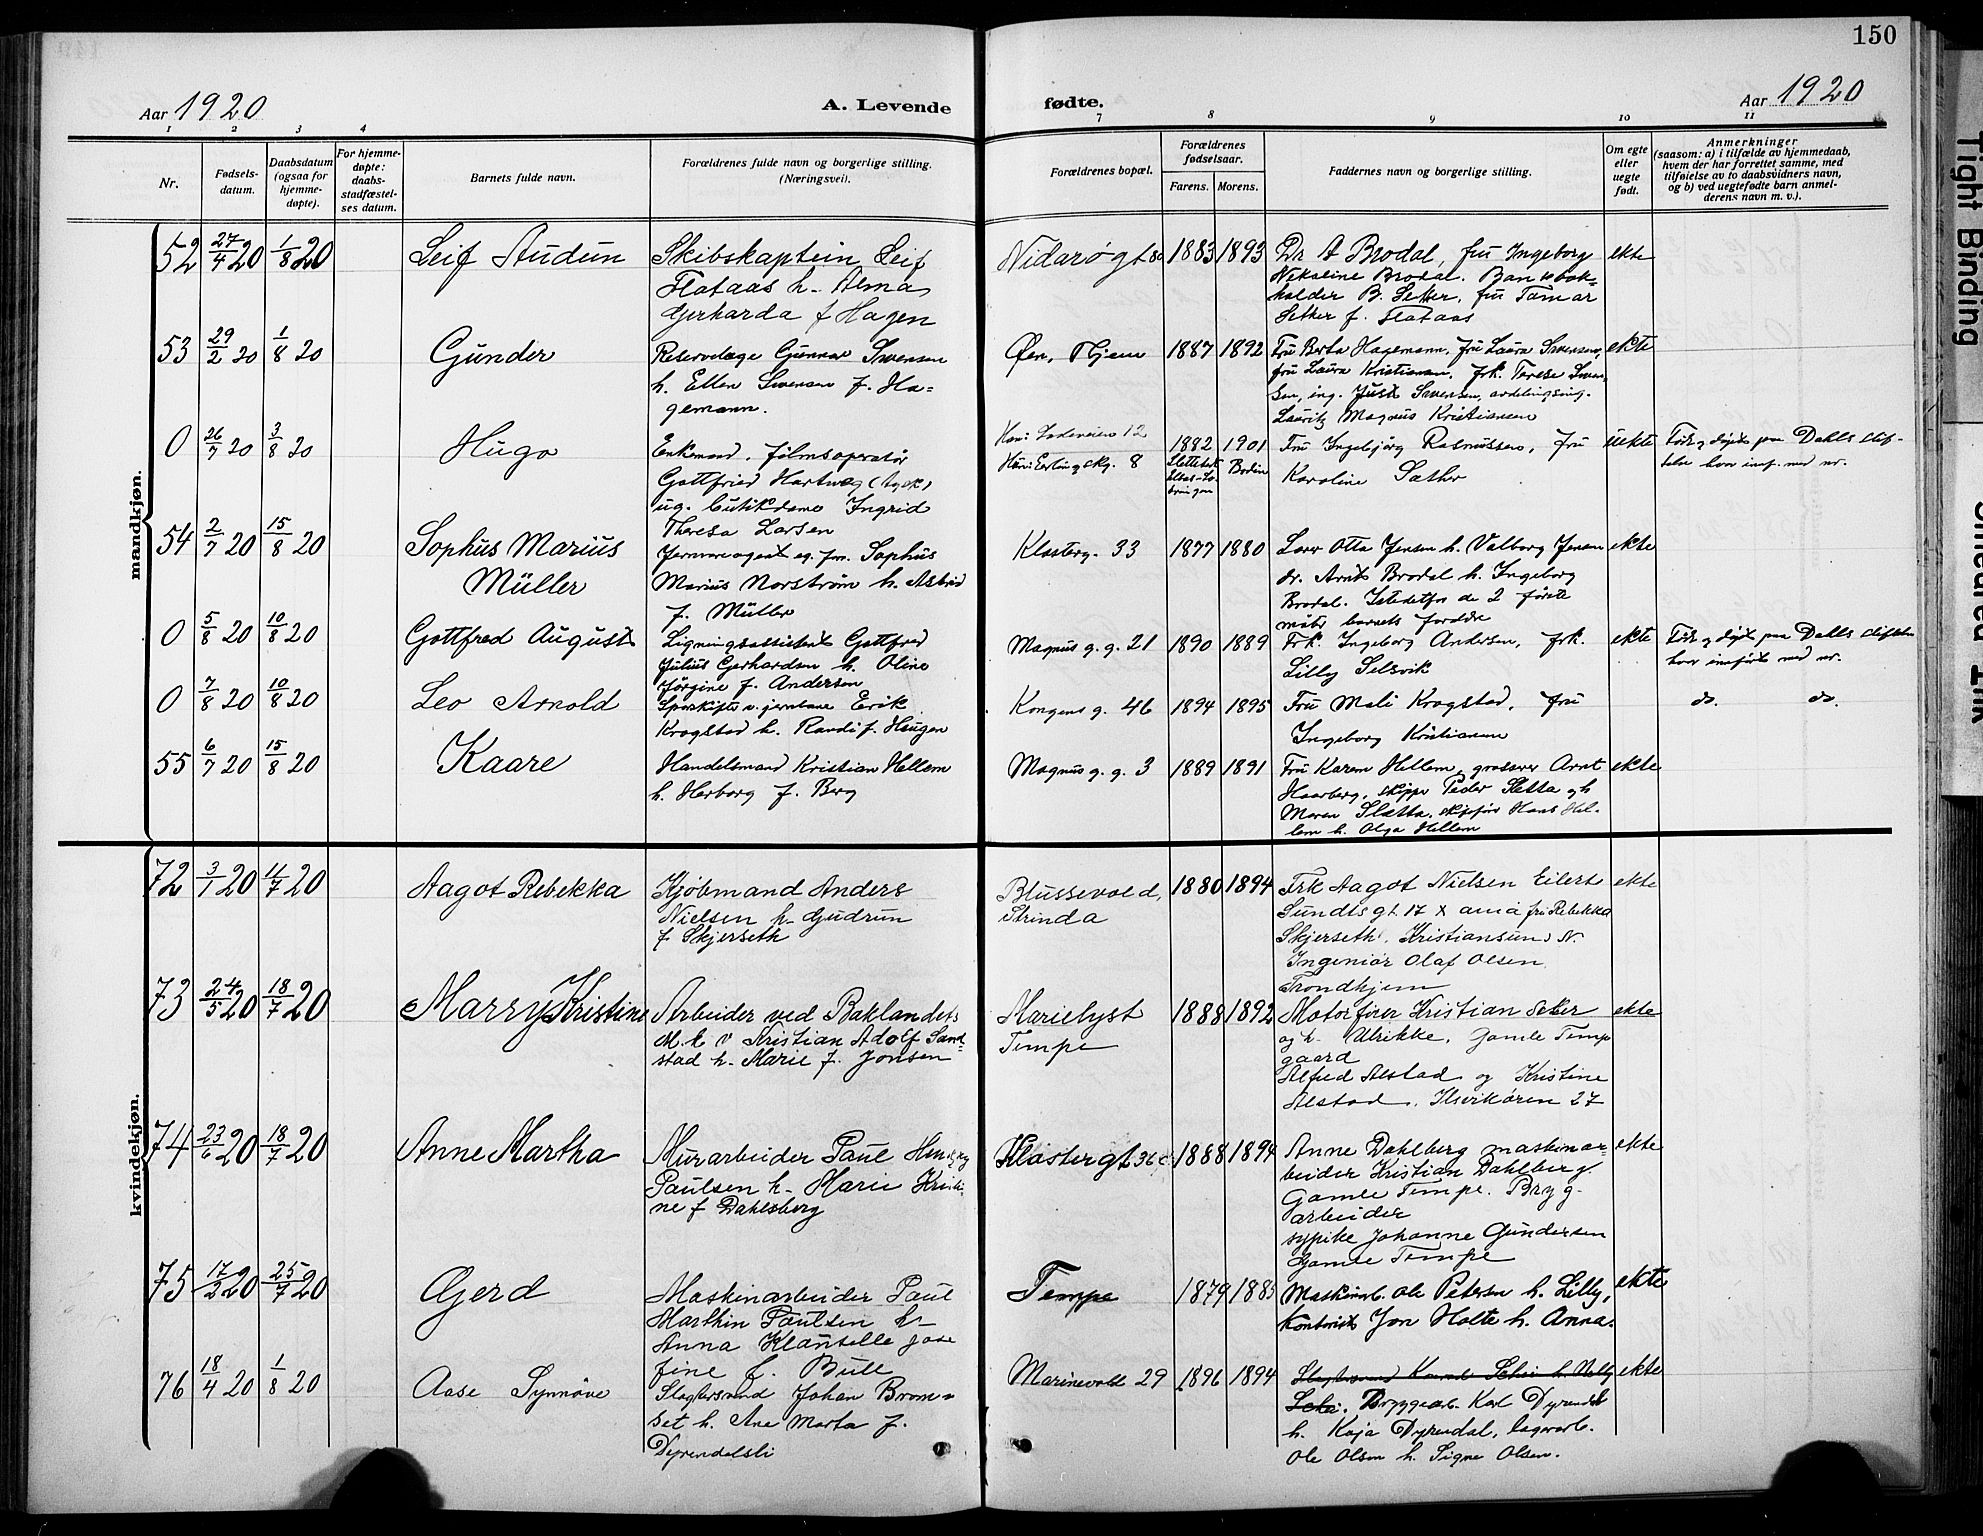 150
Aar 1920
A. Levende
fødte.
Aar 1920
1 2 3 4
7 8 9 10 11
Nr.
Fødsels-
datum.
Daabsdatum
(ogsaa for
hjemme-
døpte).
For hjemme-
døpte:
daabs-
stadfæstel-
ses datum.
Barnets fulde navn.
Forældrenes fulde navn og borgerlige stilling.
(Næringsvei).
Forældrenes bopæl.
Forældrenes
fødselsaar.
Farens. Morens.
Faddernes navn og borgerlige stilling.
Om egte
eller
uegte
født.
Anmerkninger
(saasom: a) i tilfælde av hjemmedaab,
hvem der har forrettet samme, med
tilføielse av to daabsvidners navn,
og b) ved uegtefødte barn anmel-
derens navn m. v.).
mandkjøn.
52 27/4 20 1/8 20 Leif Audun
Skibskaptein Leif
Flataas h. Alma
Gerharda f Hagen
Nidarøgt 8 1883 1893
Dr A Brodal, fru Ingeborg
Nikoline Brodal. Bankbok-
holder B. Setker, fru Tamar
Setker f. Flataas
ekte
53 29/2 20 1/8 20 Gunder
Reservelæge Gunnar Swensen
h. Ellen Swensen f. Ha-
gemann.
Øen, Thjem 1887 1892
Fru Berta Hagemann, fru Laura Swensen,
fru Laura Kristiansen. frk. Terese Swen-
sen, ing. Just Swensen, avdelingsing.
Lauritz Magnus Kristiansen
ekte
0 26/7 20 3/8 20 Hugo
Enkemand, filmsoperatør
Gottfried Hartweg (tysk)
ug. butikdame Ingrid
Theresa Larsen
Han: Ladeveien 12
Hun: Erling Skg. 8
1882 1901
Bodin
Fru Ingebjørg Rasmussen, fru
Karoline Sæther
uekte
Født og døpt paa Dahls stif-
telse hvor innf. med nr.
54 2/7 20 15/8 20 Sophus Marius
Müller
Jernvareagent eg. fm. Sophus
Marius Norstrøm h. Astrid
f. Müller
Klosterg. 33 1877 1880
Lærer Otto Jensen h. Valborg Jensen
dr. Arnt Brodal h. Ingeborg
Brodal. Istedetfor de 2 første
møtte barnets forældre
ekte
0 5/8 20 10/8 20 Gottfred August
Ligningsassistent Gottfred
Julius Gerhardsen h. Oline
Jørgine f. Andersen
Magnus g. g. 21 1890 1889
Frk. Ingeborg Andersen, frk.
Lilly Selsvik
ekte
Født og døpt paa Dahls stiftelse
hvor innført med nr.
0 7/8 20 10/8 20 Leo Arnold
Sporskifter v. jernbane Erik
Krogstad h. Randi f. Haugen
Kongens g. 46 1894 1895
Fru Mali Krogstad, fru
Ingeborg Kristiansen
do. do.
55 6/7 20 15/8 20 Kaare
Handelsmand Kristian Hellem
h. Herborg f. Berg
Magnus g. g. 3 1889 1891
Fru Karen Hellem, grosserer Arnt
Haarberg, skipper Peder Sletta og h
Maren Sletta, skipsfører Hans Hel-
lem h. Olga Hellem
ekte
kvindekjøn.
72 3/1 20 11/7 20 Aagot Rebekka
Kjøbmand Anders
Nielsen h- Gudrun
f Skjerseth
Blussevold,
Strinda
1880 1894
Frk Aagot Nielsen Eilert
Sundts gt. 17 x ania fru Rebekka
Skjerseth, Kristiansund N.
Ingeniør Olaf Olsen,
Trondhjem
ekte
73 24/5 20 18/7 20 Marry Kristine
Arbeider ved Baklandets
M. b v Kristian Adolf Sand-
stad h. Marie f. Jonsen
Marielyst
Tempe
1888 1892
Motorfører Kristian Seker
og h- Ulrikke, Gamle Temp
gaard
Alfred Alstad og Kristine
Alstad, Ilsvikøren 27
ekte
74 23/6 20 18/7 20 Anne Martha
Murarbeider Paul
Paulsen h- Marie Kristi-
ne f Dahlsberg
Klostergt 36c 1888 1894
Anne Dahlberg maskinar-
beider Kristian Dahlberg,
Gamle Tempe. Bryg-
arbeider
sypike Johanne Gundersen
Gamle Tempe
ekte
75 17/2 20 25/7 20 Gerd
Maskinarbeider Paul
Marthin Paulsen h-
Anna Klauselle Jose
fine f. Bull
Tempe 1879 1885
Maskinarb. Ole Petersen h. Lilly,
Kontorist Jon Holte h. Anna.
ekte
76 18/4 20 1/8 20 Aase Synnøve
Slagtersvend Johan Brom-
set h. Ane Marta f.
Dyrendalsli
Marinevold 29 1896 1894
Slagtersvend h. Nelly
Schei. Bryggearb. Karl Dyrendal
h. Kaja Dyrendal, lagerarb.
Ole Olsen h. Signe Olsen.
ekte
Tight Binding